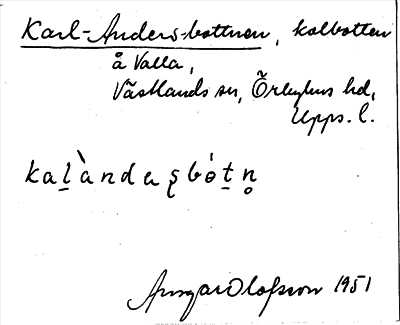 Karl-Anders-bottnen, kolbotten
å Valla,
Västlands sn, Örbyhus hd,
Upps. l.
kaḻàndeʂbótṯn̥
Ansgar Olofsson 1951